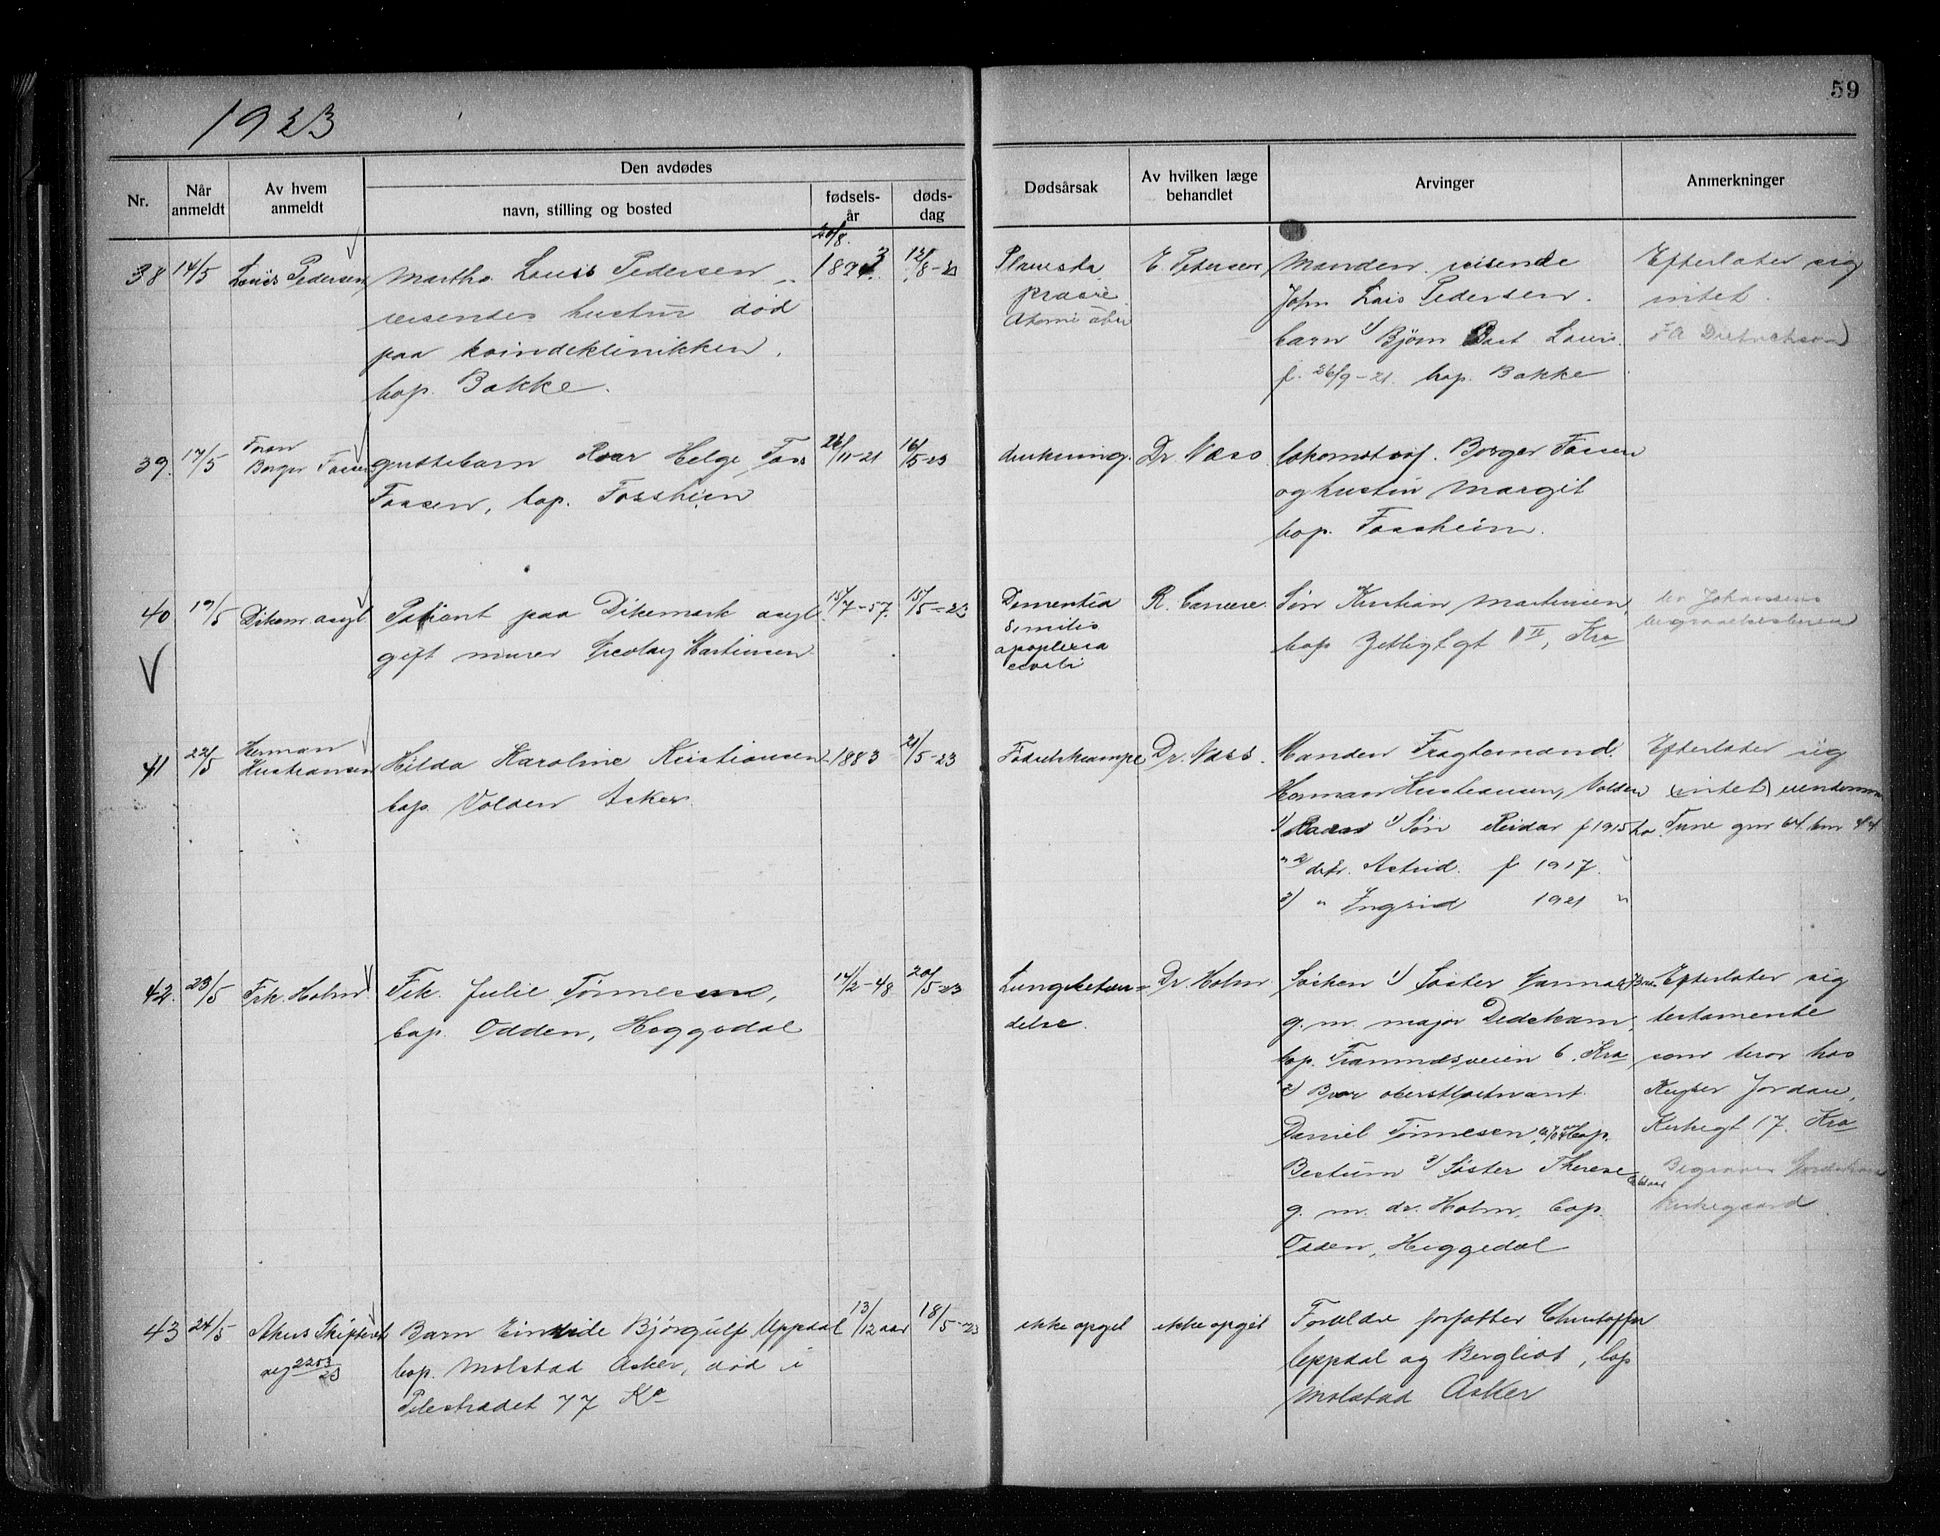 1923
59
Nr.
Når anmeldt
Av hvem anmeldt
Den avdødes
navn, stilling og bosted
fødsels-år
døds-dag
Dødsårsak
Av hvilken læge behandlet
Arvinger
Anmerkninger
38 14/5 Louis Pedersen
Martha Louis Pedersen
reisendes hustru død
paa kvindeklinikken.
bop. Bakke.
20/8.
1893
E. Pedersen
Manden reisende
John Louis Pedersen.
barn 1) Bjørn Louis
f. 26/9-21. bop. Bakke
Efterlater sig
intet.
39. 17/5
Borger Fossen
gustebarn Roar Helge Foss
Fossen, bop. Fossheim
26/11-21
16/5-23
drukning.
Dr. Næss
lokomotivf. Borger Fossen
og hustru Margit
bop. Fossheim.
40 19/5 Dikem. asyl
Patient paa Dikemark asyl.
gift murer Martinsen
15/7-57.
15/5-23
Dementia
senilis
apoplexia
Søn Kristian Martinsen,
bop Zetlitzgt II, Kra
begravelsesbyraa
41 22/5 Herman
Kristiansen
Hilda Karoline Kristiansen
bop. Volden Asker.
1883
21/5-23
Fødselskrampe
Dr. Næss.
Manden Fragtemand.
Herman Kristiansen, Volden
1) Søn Reidar f 1915
2 dtr. Astrid. f 1917.
3) " Ingrid 1921 "
Efterlater sig
(intet)
Tune gnr 64. bnr 44
42. 23/5 Frk. Holm
Frk. Julie Tønnesen,
bop. Odden, Heggedal
14/2-48
20/5-23
Lungebeten=
delse.
Dr. Holm
Søsken 1) Søster Hanna
g. m. major Dedekam,
bop. Framnæsveien 6. Kra
2) Bror oberstløitnant
Daniel Tønnesen, bop.
Bestum 3) Søster Therese
g. m. dr. Holm, bop.
Odden, Heggedal
Efterlater sig
testamente
som beror hos
Keyser Jordan,
Kirkegt 17. Kra
Begraves
kirkegaard.
43 24/5 Akers Skifteret
2253/23
Barn Eindride Bjørgulf Uppdal
bop. Molstad Asker, død i
Pilestrædet 77 Kra
13/12 aar
18/5-23
ikke opgit
ikke opgit
Forældre forfatter Christoffer
Uppdal og Bergliot, bop
Molstad Asker